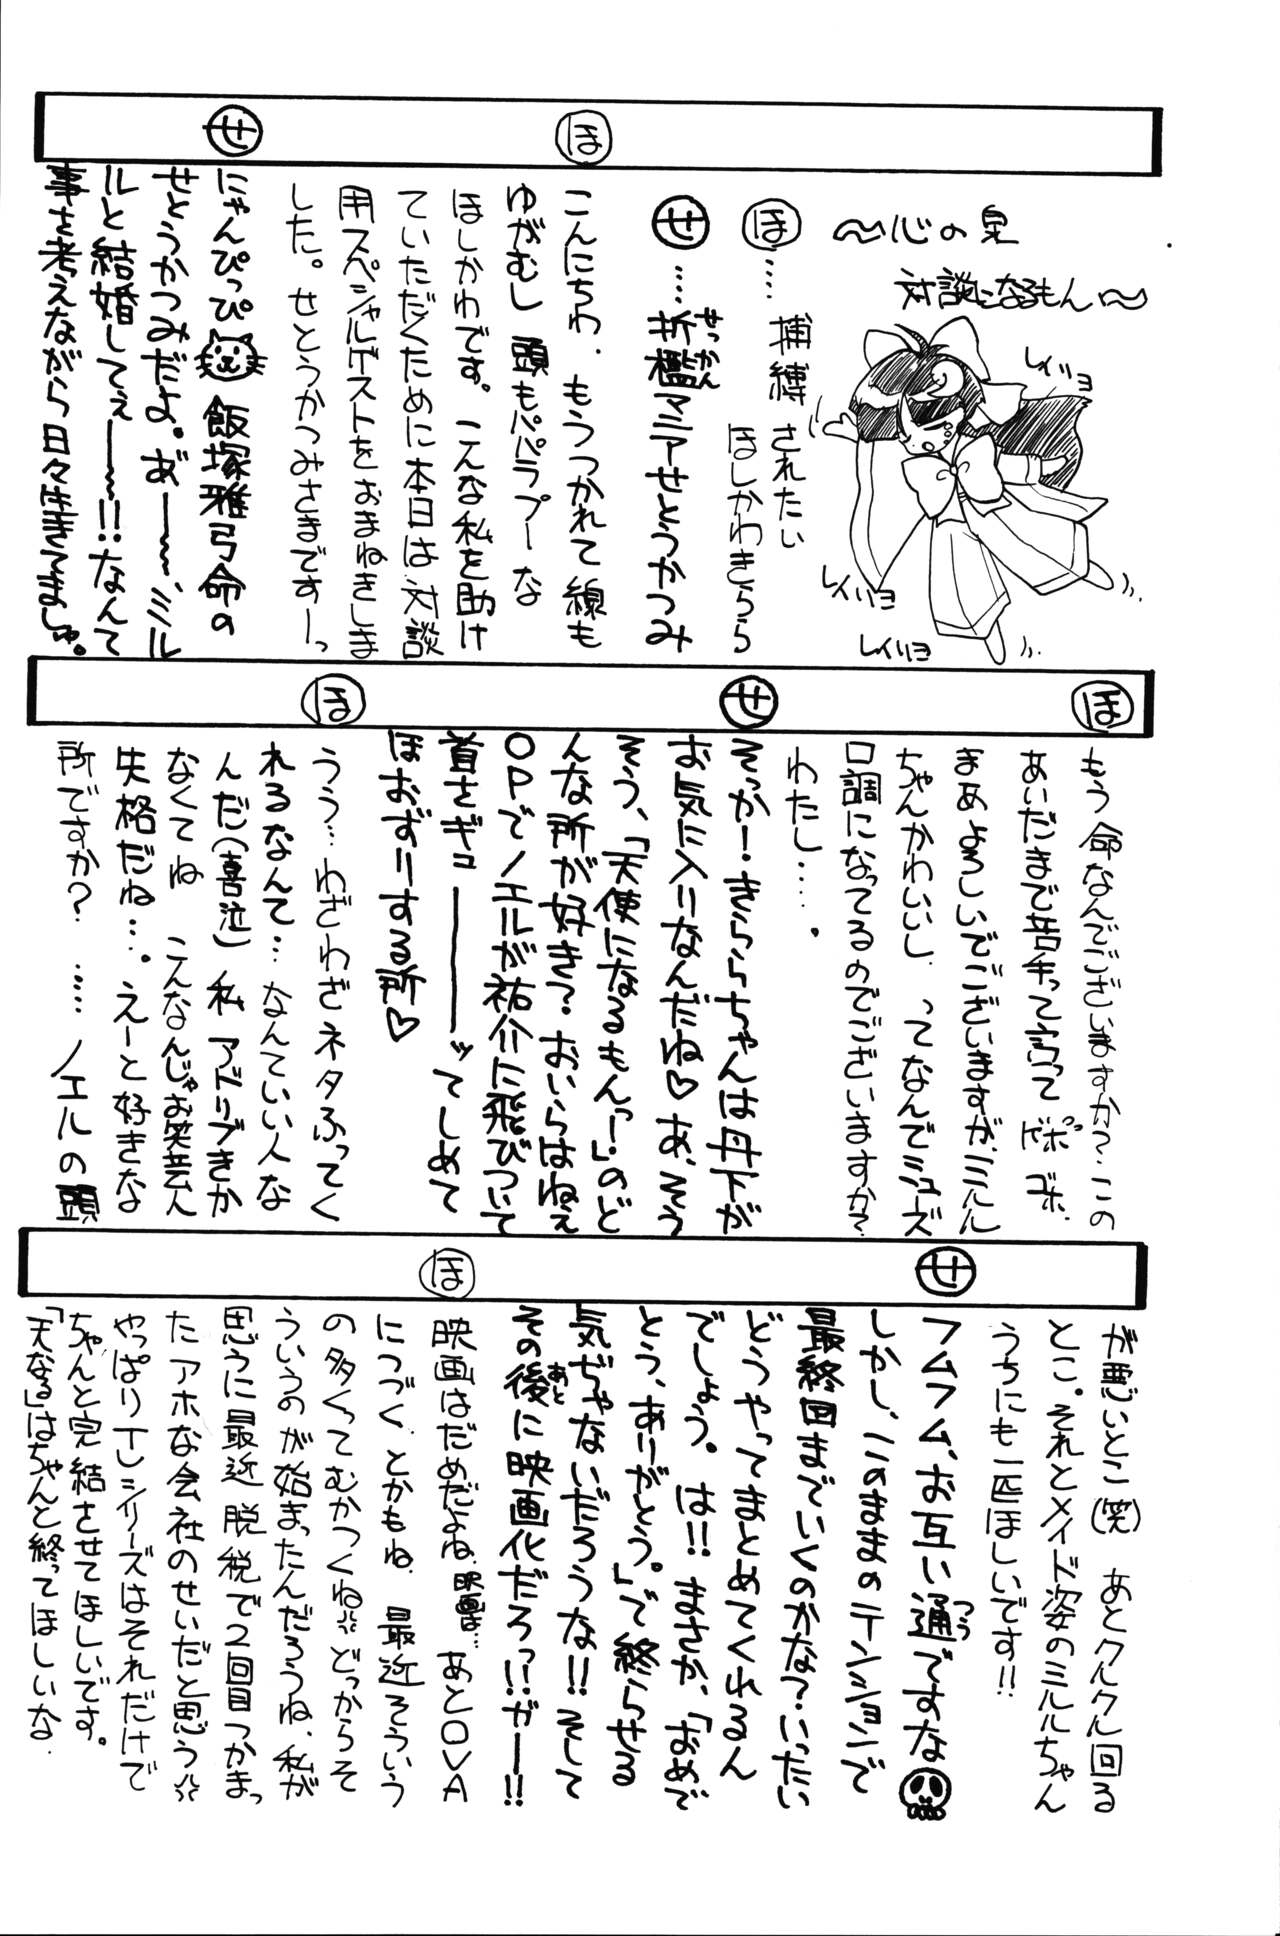 ～心の泉
対談になるもん～
レイリヨ
レイリヨ
レイリヨ
ほ……捕縛されたい
ほしかわきらら
せ……折檻マニアせとうかつみ
せっかん
ほ
こんにちわ.もうつかれて線も
ゆがむし 頭もパパラプーな
ほしかわです。こんな私を助け
ていただくために本日は対談
用スペシャルゲストをおまねきしま
した。せとうかつみさまですーっ
せ
にゃんぴっぴ 飯塚雅弓命の
せとうかつみだよ。あ゛ー～～、ミル
ルと結婚してぇー～～!!なんて
事を考えながら日々生きてましゅ。
ほ
もう命なんでございますか?.この
あいだまで苦手って言って ドボゴホッ.
まあよろしいでございますが、ミルル
ちゃんかわいいし.ってなんでミューズ
口調になってるのでございますか?
わたし….。
せ
そっか!.きららちゃんは丹下が
お気に入りなんだね♡あ、そう
そう、「天使になるもんっ!」のど
んな所が好き?.おいらはねぇ
OPでノエルが祐介に飛びついて
首をギュ―――ッてしめて
ほおずりする所♡
ほ
うう…わざわざネタふってく
れるなんて…なんていい人な
んだ(喜泣)私 アドリブきか
なくてね こんなんじゃお笑芸人
失格だね…。えーと好きな
所ですか? ……ノエルの頭
が悪いとこ(笑) あとクルクル回る
とこ。それとメイド姿のミルルちゃん
うちにも一匹ほしいです!!
せ
フムフム、お互い通ですな
つう
しかし、このままのテンションで
最終回までいくのかな?.いったい
どうやってまとめてくれるん
でしょう。は!!まさか、「おめで
とう、ありがとう。」で終らせる
気ぢゃないだろうな!!そして
その後に映画化だろ?!ガー!!
あと
ほ
映画はだめだよね.映画は… あとOVA
につづく とかもね 最近そういう
の多くってむかつくね どっからそ
ういうのが始まったんだろうね.私が
思うに最近 脱税で2回目つかまっ
たアホな会社のせいだと思う
やっぱりTVシリーズはそれだけで
ちゃんと完結させてほしいです。
「天なる」はちゃんと終ってほしいな.